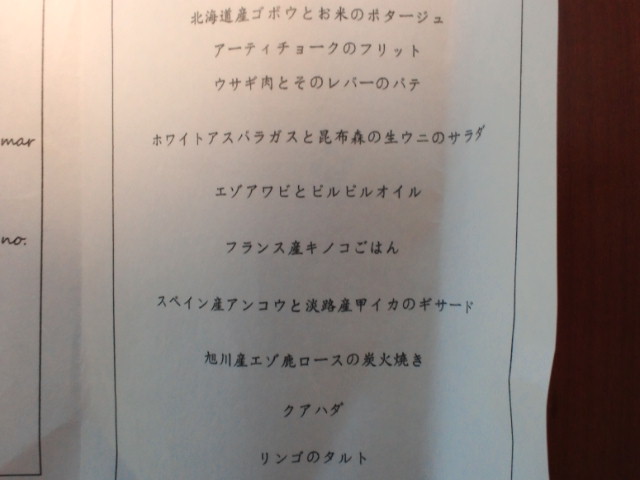 北海道産ゴボウとお米のポタージュ
アーティチョークのフリット
ウサギ肉とそのレバーのパテ
mar
ホワイトアスパラガスと昆布森の生ウニのサラダ
エゾアワビとピルピルオイル
no.
フランス産キノコごはん
スペイン産アンコウと淡路産甲イカのギサード
旭川産エゾ鹿ロースの炭火焼き
クアハダ
リンゴのタルト